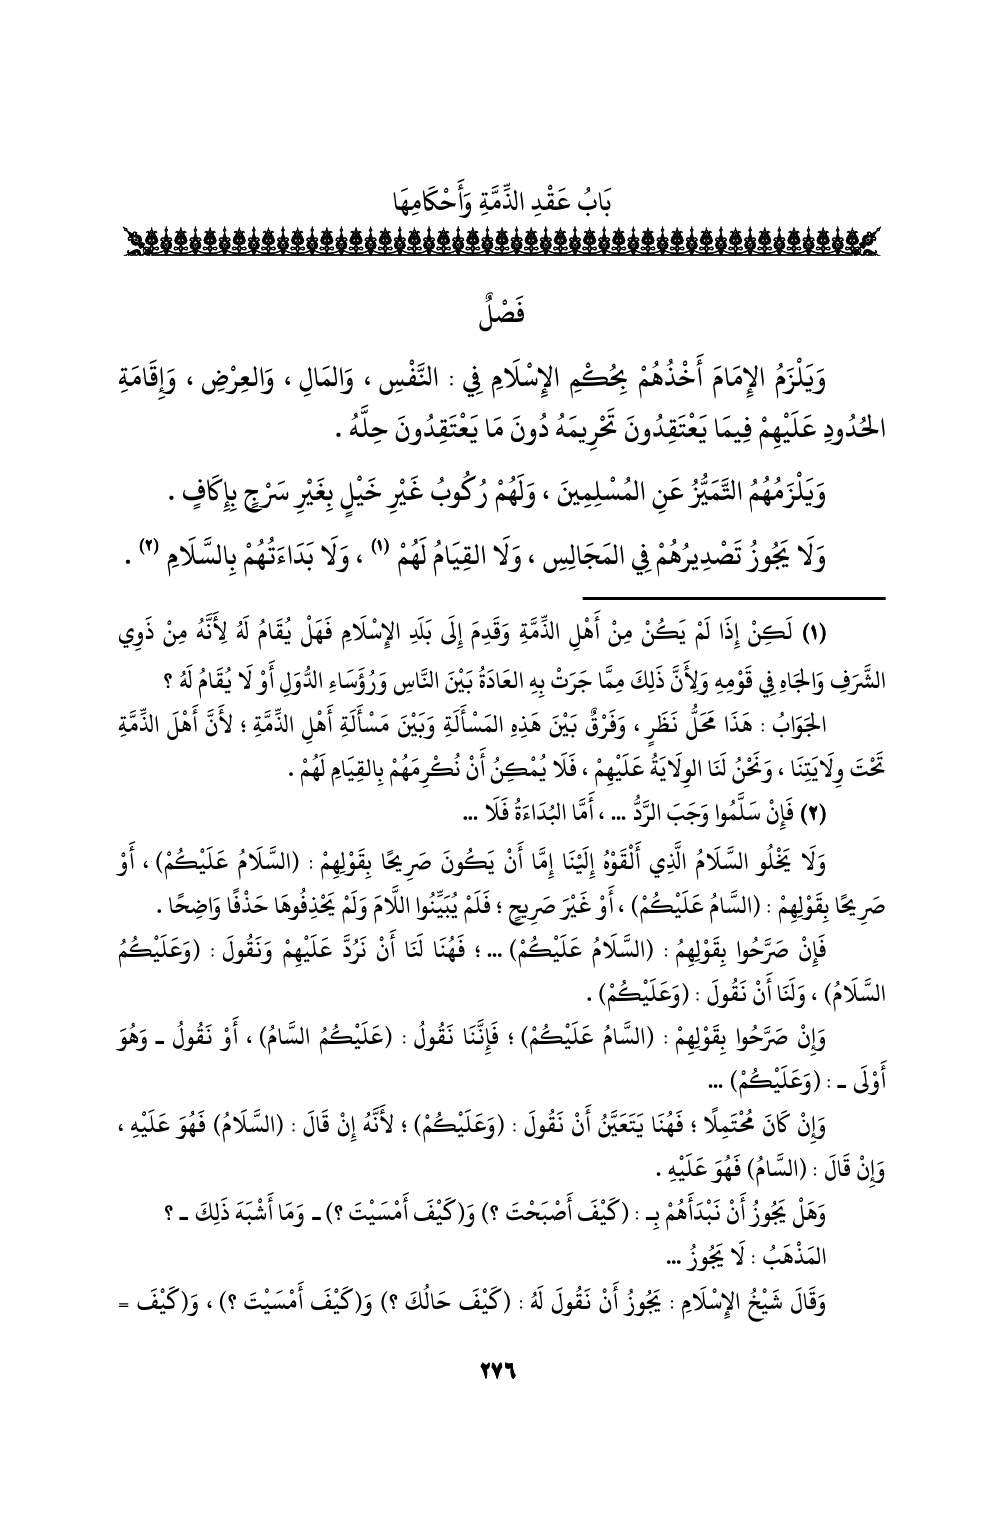 بَابُ عَقْدِ الذِّمَّةِ وَأَحْكَامِهَا
فَصْلٌ
وَيَلْزَمُ الإِمَامَ أَخْذُهُمْ بِحُكْمِ الإِسْلَامِ فِي : النَّفْسِ ، وَالمَالِ ، وَالعِرْضِ ، وَإِقَامَةِ
الحُدُودِ عَلَيْهِمْ فِيمَا يَعْتَقِدُونَ تَحْرِيمَهُ دُونَ مَا يَعْتَقِدُونَ حِلَّهُ .
وَيَلْزَمُهُمُ التَّمَيُّزُ عَنِ المُسْلِمِينَ ، وَلَهُمْ رُكُوبُ غَيْرِ خَيْلٍ بِغَيْرِ سَرْجٍ بِإِكَافٍ .
وَلَا يَجُوزُ تَصْدِيرُهُمْ فِي المَجَالِسِ ، وَلَا القِيَامُ لَهُمْ (١) ، وَلَا بَدَاءَتُهُمْ بِالسَّلَامِ (٢) .
(١) لَكِنْ إِذَا لَمْ يَكُنْ مِنْ أَهْلِ الذِّمَّةِ وَقَدِمَ إِلَى بَلَدِ الإِسْلَامِ فَهَلْ يُقَامُ لَهُ لِأَنَّهُ مِنْ ذَوِي
الشَّرَفِ وَالجَاهِ فِي قَوْمِهِ وَلِأَنَّ ذَلِكَ مِمَّا جَرَتْ بِهِ العَادَةُ بَيْنَ النَّاسِ وَرُؤَسَاءِ الدُّوَلِ أَوْ لَا يُقَامُ لَهُ ؟
الجَوَابُ : هَذَا مَحَلُّ نَظَرٍ ، وَفَرْقٌ بَيْنَ هَذِهِ المَسْأَلَةِ وَبَيْنَ مَسْأَلَةِ أَهْلِ الذِّمَّةِ ؛ لأَنَّ أَهْلَ الذِّمَّةِ
تَحْتَ وِلَايَتِنَا ، وَنَحْنُ لَنَا الوِلَايَةُ عَلَيْهِمْ ، فَلَا يُمْكِنُ أَنْ نُكْرِمَهُمْ بِالقِيَامِ لَهُمْ .
(٢) فَإِنْ سَلَّمُوا وَجَبَ الرَّدُّ ... ، أَمَّا البُدَاءَةُ فَلَا ...
وَلَا يَخْلُو السَّلَامُ الَّذِي أَلْقَوْهُ إِلَيْنَا إِمَّا أَنْ يَكُونَ صَرِيحًا بِقَوْلِهِمْ : (السَّلَامُ عَلَيْكُمْ) ، أَوْ
صَرِيحًا بِقَوْلِهِمْ : (السَّامُ عَلَيْكُمْ) ، أَوْ غَيْرَ صَرِيحٍ ؛ فَلَمْ يُبَيِّنُوا اللَّامَ وَلَمْ يَحْذِفُوهَا حَذْفًا وَاضِحًا .
فَإِنْ صَرَّحُوا بِقَوْلِهِمُ : (السَّلَامُ عَلَيْكُمْ) ... ؛ فَهُنَا لَنَا أَنْ نَرُدَّ عَلَيْهِمْ وَنَقُولَ : (وَعَلَيْكُمُ
السَّلَامُ) ، وَلَنَا أَنْ نَقُولَ : (وَعَلَيْكُمْ) .
وَإِنْ صَرَّحُوا بِقَوْلِهِمْ : (السَّامُ عَلَيْكُمْ) ؛ فَإِنَّنَا نَقُولُ : (عَلَيْكُمُ السَّامُ) ، أَوْ نَقُولُ ـ وَهُوَ
أَوْلَى ـ : (وَعَلَيْكُمْ) ...
وَإِنْ كَانَ مُحْتَمِلًا ؛ فَهُنَا يَتَعَيَّنُ أَنْ نَقُولَ : (وَعَلَيْكُمْ) ؛ لأَنَّهُ إِنْ قَالَ : (السَّلَامُ) فَهُوَ عَلَيْهِ ،
وَإِنْ قَالَ : (السَّامُ) فَهُوَ عَلَيْهِ .
وَهَلْ يَجُوزُ أَنْ نَبْدَأَهُمْ بِـ : (كَيْفَ أَصْبَحْتَ ؟) وَ(كَيْفَ أَمْسَيْتَ ؟) ـ وَمَا أَشْبَهَ ذَلِكَ ـ ؟
المَذْهَبُ : لَا يَجُوزُ ...
وَقَالَ شَيْخُ الإِسْلَامِ : يَجُوزُ أَنْ نَقُولَ لَهُ : (كَيْفَ حَالُكَ ؟) وَ(كَيْفَ أَمْسَيْتَ ؟) ، وَ(كَيْفَ =
٢٧٦